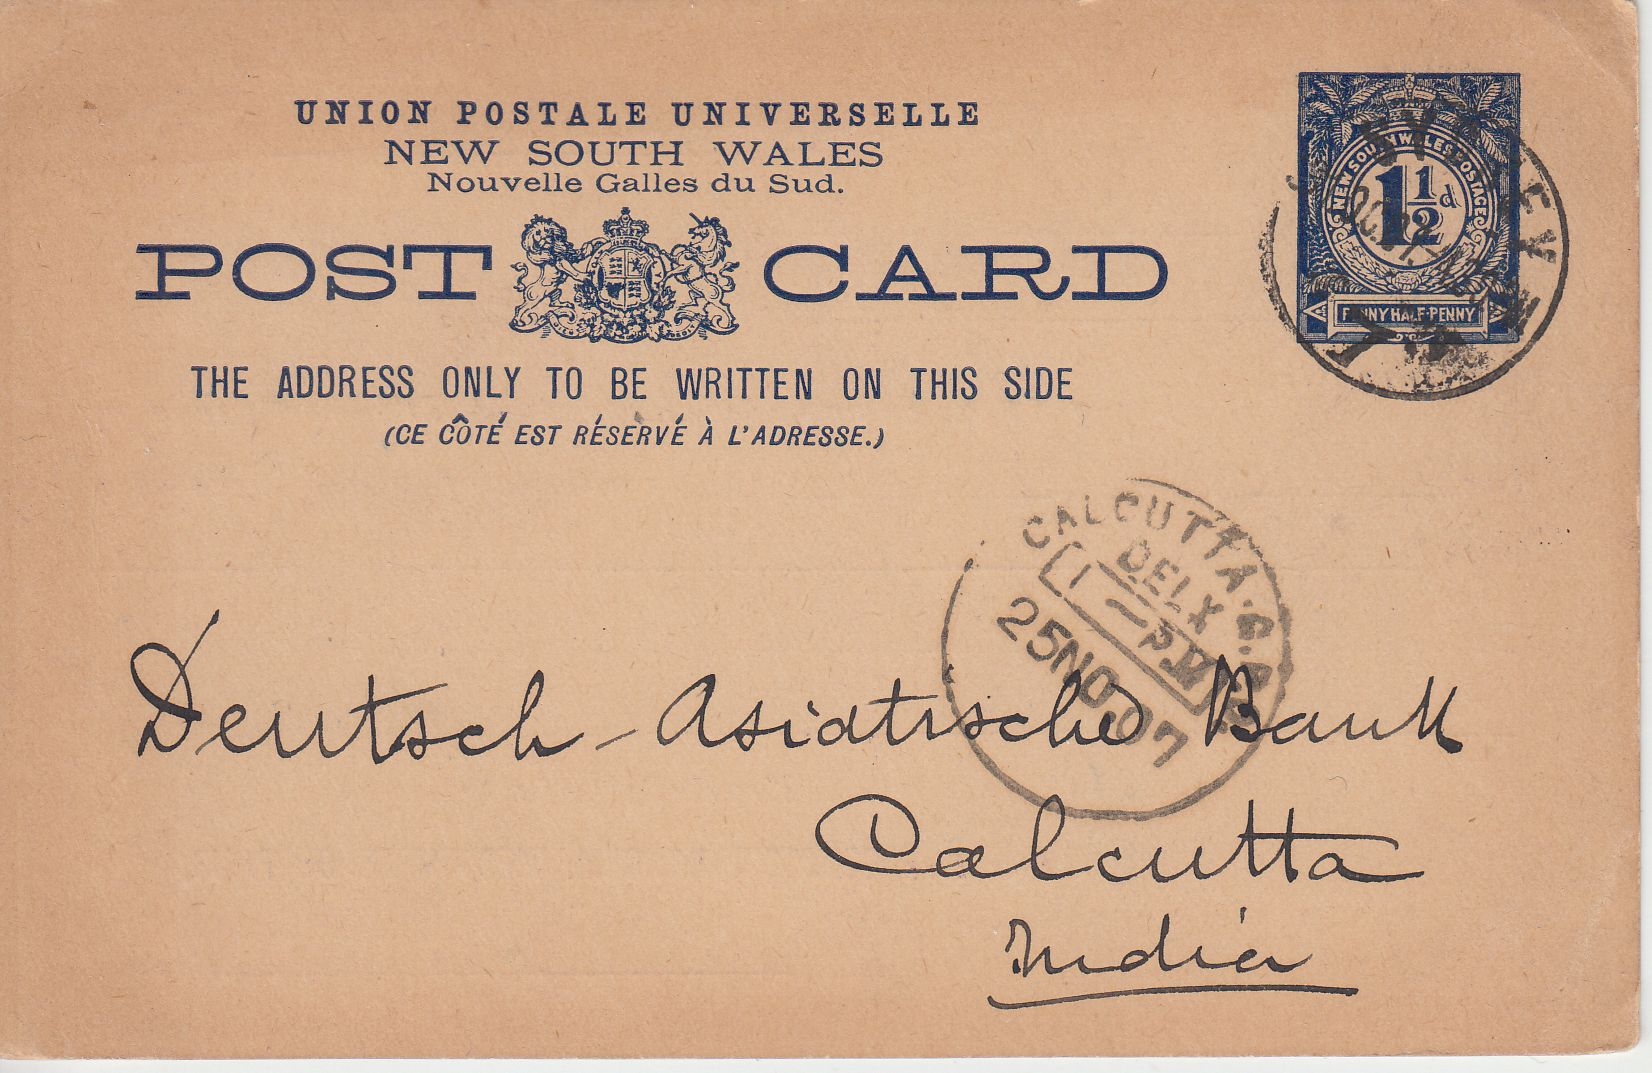 UNION POSTALE UNIVERSELLE
NEW SOUTH WALES
Nouvelle Galles du Sud.
POST CARD
THE ADDRESS ONLY TO BE WRITTEN ON THIS SIDE
(CE CÔTÉ EST RÉSERVÉ À L'ADRESSE.)
NEW SOUTH WALES POSTAGE
1 1/2 d
PENNY HALF-PENNY
SYDNEY
CALCUTTA. G.
DELY
1-P.M
25NO.07
Deutsch-Asiatische Bank
Calcutta
India